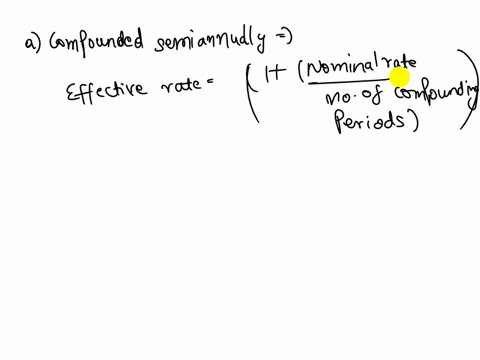 a) Compounded semiannudly =>
Effective rate = (1+ (Nominal rate
no. of compounding
Periods))